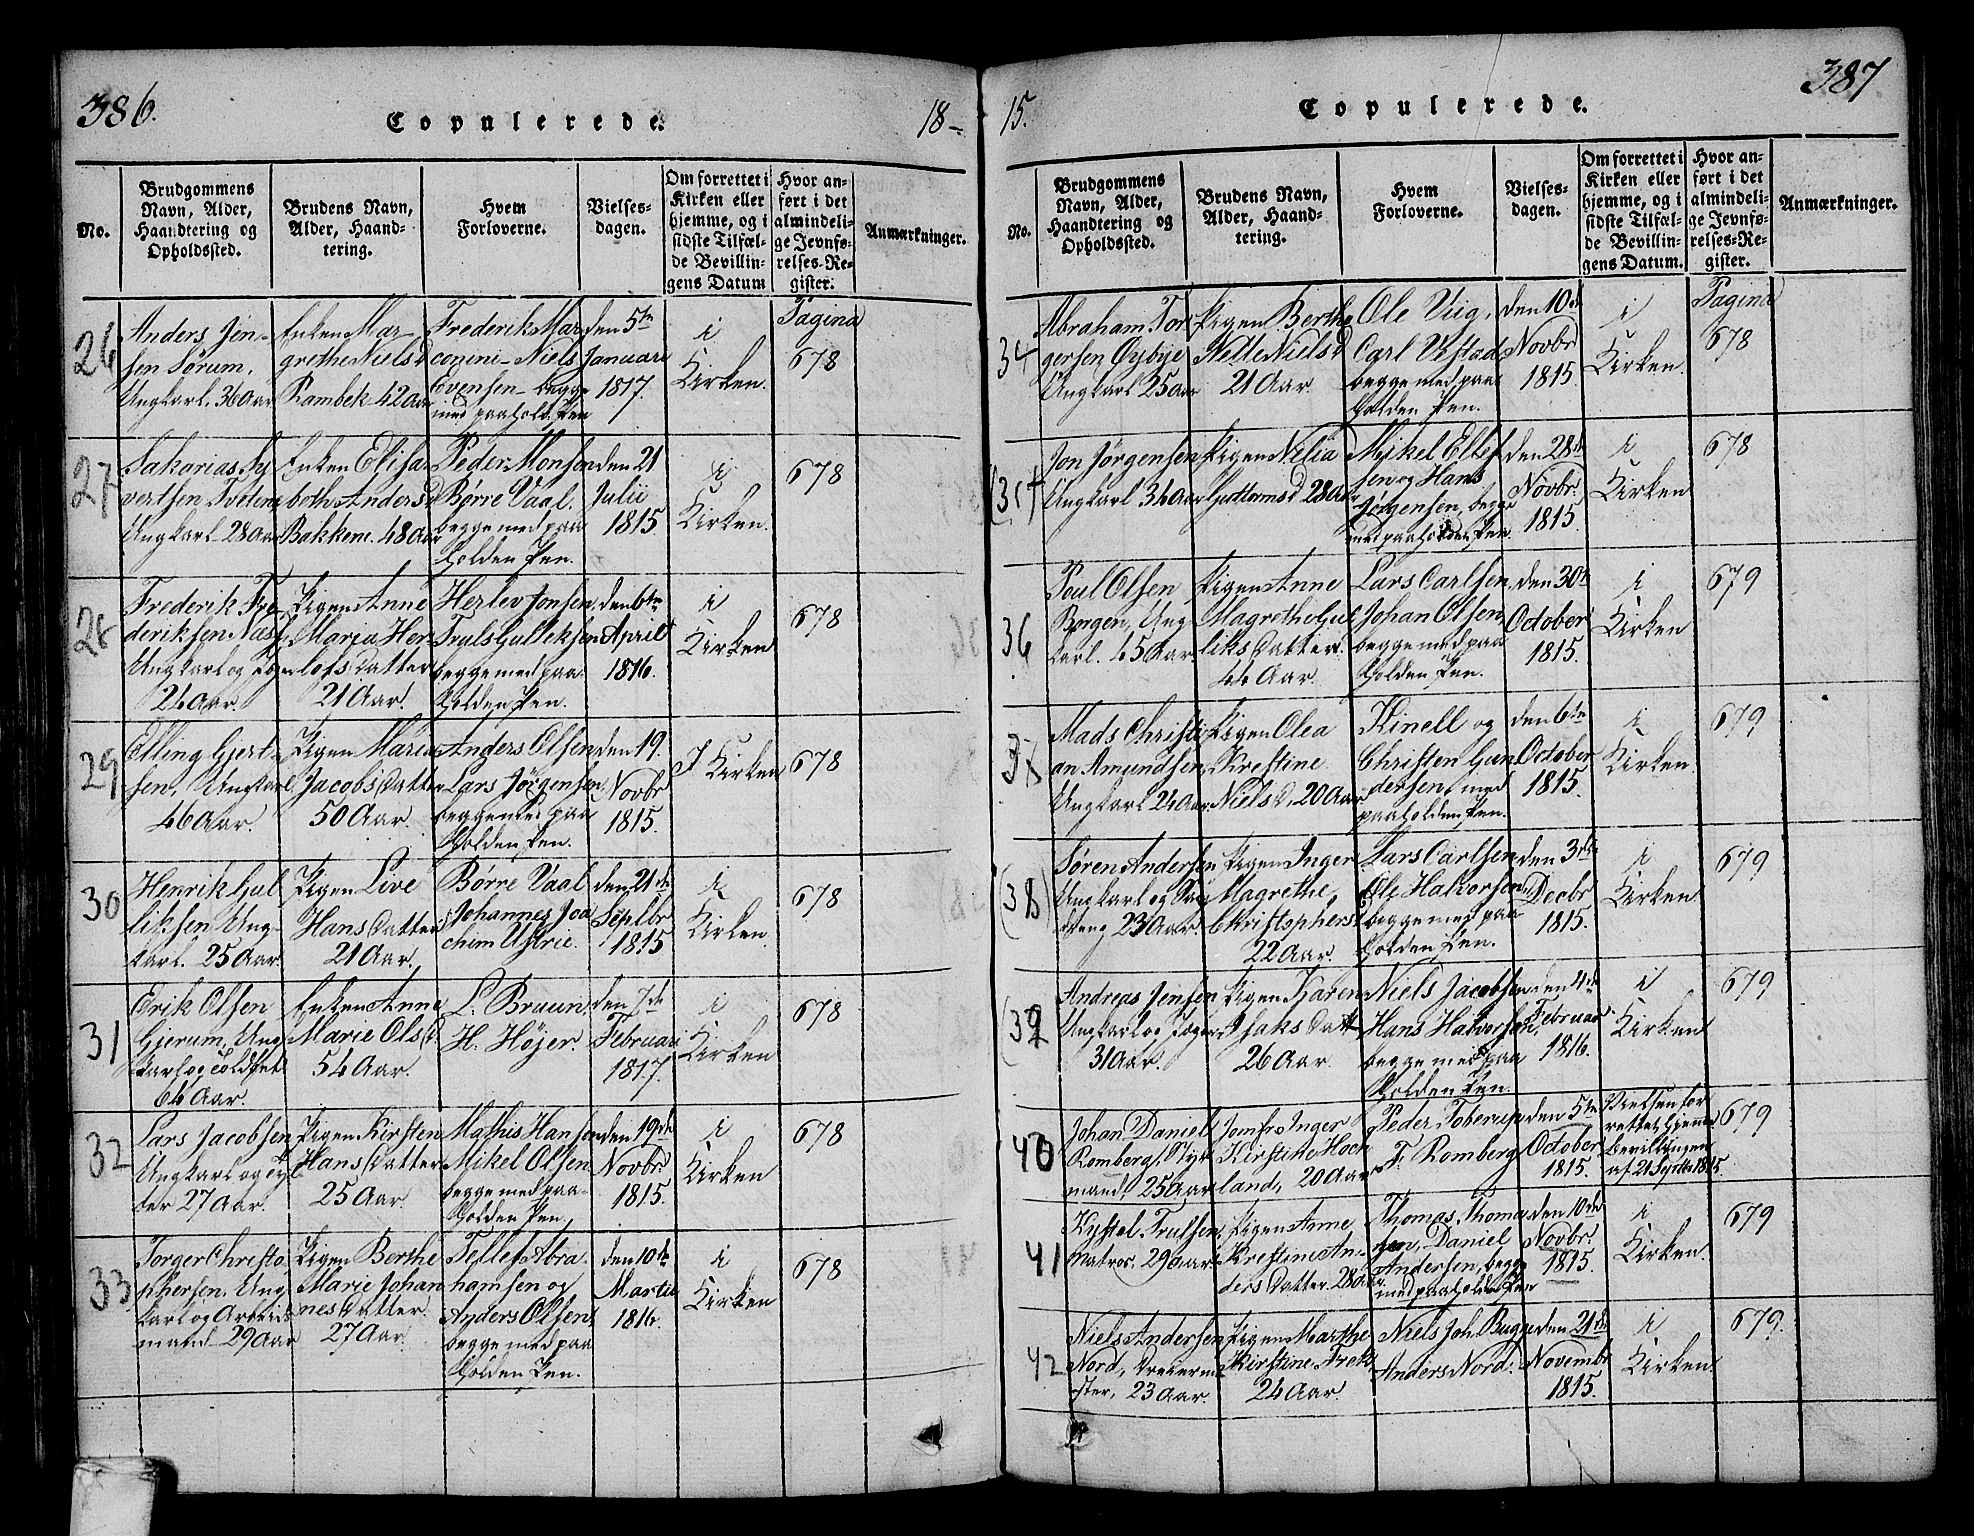 386.
Copulerede.
18-
No.
Brudgommens Navn, Alder, Haandtering og Opholdssted.
Brudens Navn, Alder, Haandtering.
Hvem Forloverne.
Vielses-dagen.
Om forrettet i Kirken eller hjemme, og i sidste Tilfælde Bevillingens Datum
Hvor anført i det almindelige Jevnførelses-Register.
Anmærkninger.
Pagina
26
Anders Jen-
sen Sørum,
Ungkarl. 36 Aar
Enken Mar-
grethe Niels D
Rambek 42 Aar
Frederik Mar
conini - Niels
Evensen - begge
med paahold. Pen
den 5te
Januari
1817.
i
Kirken.
678
27
Sakarias Sy
vertsen Tvetene
Ungkarl 28 Aar
Enken Elisa
beth Anders D
Bakkene. 48 Aar
Peder Monsen
Børre Vaal.
begge med paa
Holden Pen.
den 21
Julii
1815
i
Kirken.
678
28
Frederik Fre
deriksen Næs
Ungkarl og
24 Aar
Pigen Anne
Maria Her-
lofs Datter
21 Aar.
Herlev Jonsen
Truls Gulleksen
begge med paa
Holden Pen.
den 6te
April
1816.
i
Kirken
678
29
Elling Gjert-
sen, Ungkarl
46 Aar.
Pigen Maria
Jacobs Datter
50 Aar.
Anders Olsen
Lars Jørgensen
begge med paa
Holden Pen.
den 19.
Novbr
1815.
I Kirken
678
30
Henrik Gul
liksen Ung-
karl. 25 Aar.
Pigen Live
Hans Datter
21 Aar.
Børre Vaal
Johannes Joa
chim Ustrie.
den 21de
Septbr
1815
i
Kirken.
678
31
Erik Olsen
Gjerum, Ung
karl og Coldset
64 Aar.
Enken Anne
Marie Ols D.
54 Aar.
L. Braun.
H. Højer.
den 7de
Februari
1817.
i
Kirken
678
32
Lars Jacobsen
Ungkarl og
ber 27 Aar.
Pigen Kirsten
Hans Datter
25 Aar
Mathis Hansen
Mikel Olsen
begge med paa-
Holden Pen
den 19de
Novbr
1815.
i
Kirken
678
33
Torger Christo
phersen. Ung
karl og Arbeids
mand 29 Aar
Pigen Berthe
Marie Johan
nes Datter.
27 Aar
Tellef Abra
hamsen og
Anders Olsen
begge med paa
Holden Pen.
den 10de
Martii
1816.
i
Kirken
678
15.
Copulerede.
387
No.
Brudgommens Navn, Alder, Haandtering og Opholdssted.
Brudens Navn, Alder, Haandtering.
Hvem Forloverne.
Vielses-dagen.
Om forrettet i Kirken eller hjemme, og i sidste Tilfælde Bevillingens Datum.
Hvor anført i det almindelige Jevnførelses-Register.
Anmærkninger.
Pagina
34
Abraham Tor
gersen Øybye
Ungkarl 25 Aar
Pigen Berthe
Nelle Niels D
21 Aar.
Ole Viig,
Carl Vestad
begge med paa
Holden Pen.
den 10de
Novbr
1815
i
Kirken.
678
35
Jon Jørgensen
Ungkarl 34 Aar
Pigen Nelia
Guttorms D 28 Aar
Mikel Ellef
sen og Hans
Jørgensen, begge
med paaholden Pen
den 28de
Novbr.
1815.
i
Kirken
678
36
Poul Olsen
Borgen, Ung
karl. 45 Aar.
Pigen Anne
Magrethe Gul
liks Datter.
44 Aar.
Lars Carlsen
Johan Olsen
begge med paa
Holden Pen.
den 30te
October
1815.
i
Kirken
679
37
Mads Christi
an Amundsen
Ungkarl 24 Aar
Pigen Olea
Kristine
Niels D, 20 Aar
Kinell og
Christen Gun
dersen, med
paaholden Pen.
den 6te
October
1815.
i
Kirken.
679
38
Søren Andersen
Ungkarl og
dreng 23 Aar.
Pigen Inger
Magrethe,
Christophers D
22 Aar.
Lars Carlsen
Ole Halvorsen,
begge med paa
Holden Pen.
den 3die
Decbr
1815.
i
Kirken.
679
39
Andreas Jensen
Ungkarl og
31 Aar.
Pigen Karen
Isaks Datt
26 Aar.
Niels Jacobsen
Hans Halvorsen,
begge med paa
Holden Pen.
den 4de
Februar
1816.
i
Kirken
679
40
Johan Daniel
Romberg,
mand 25 Aar
Jomfru Inger
Kirstine Hoch
land, 20 Aar
Peder Toberup
F. Romberg
den 5te
October
1815.
Vielsen for
rettet hjemme
bevillingen
af 21 Septbr 1815.
679
41
Kystel Trulsen,
Matros. 29 Aar
Pigen Anne
Krestine An-
ders Datter. 28 Aar
Thomas Thoma
sen, Daniel
Andersen, begge
med paaholden Pen
den 10de
Novbr.
1815.
i
Kirken.
679
42
Niels Andersen
Nord, Dreierme
ster, 23 Aar.
Pigen Marthe
Kirstine Freks
24 Aar.
Niels Joh Bugge
Anders Nord.
den 21de
Novembr
1815.
i
Kirken.
679.